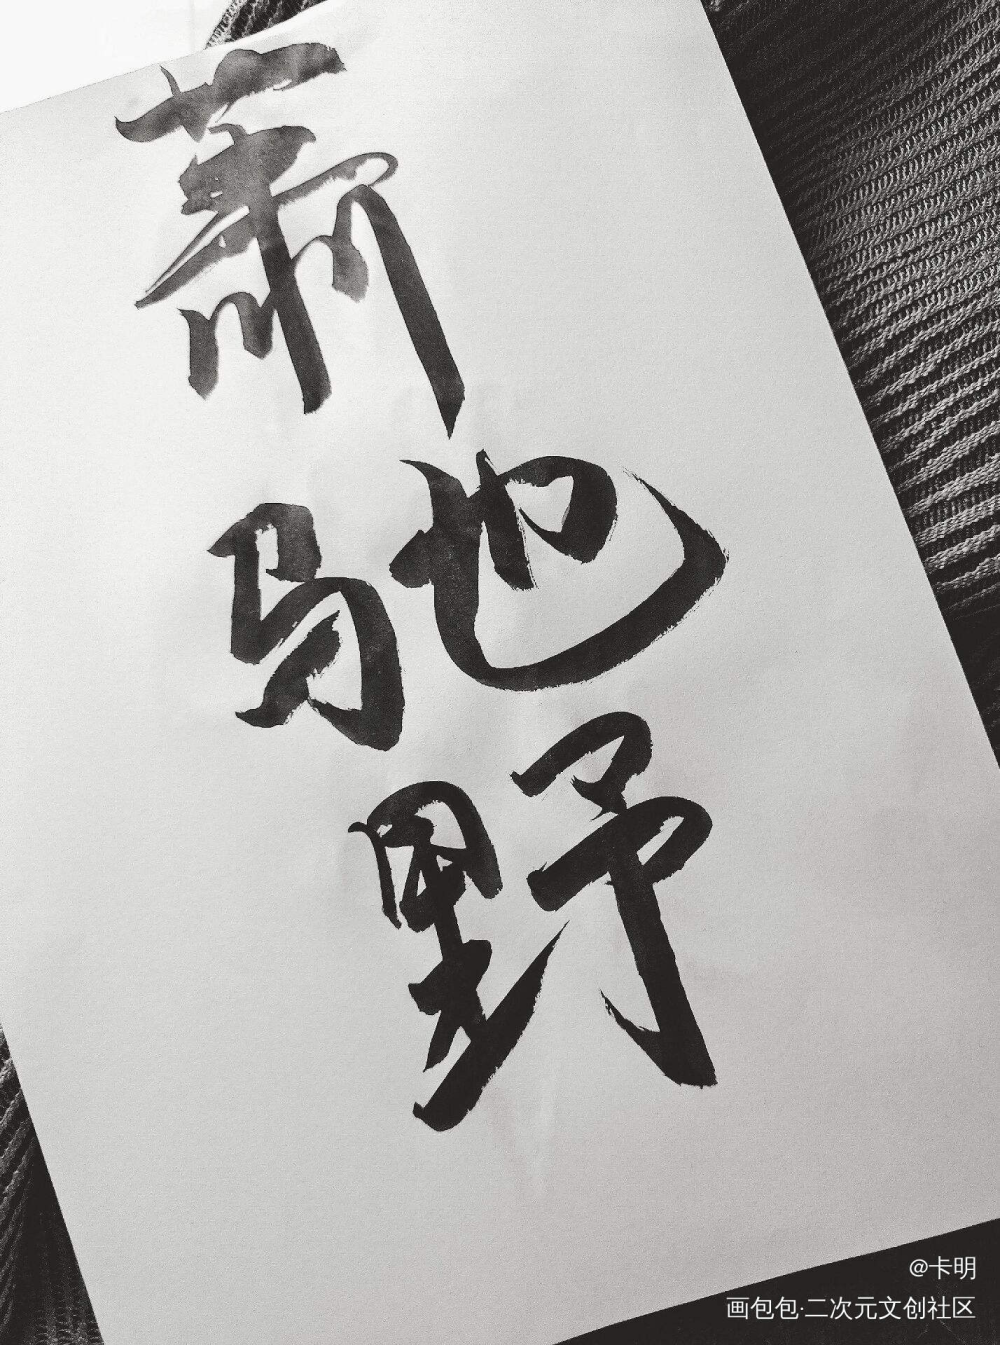 蕭驰野
@卡明
画包包·二次元文创社区